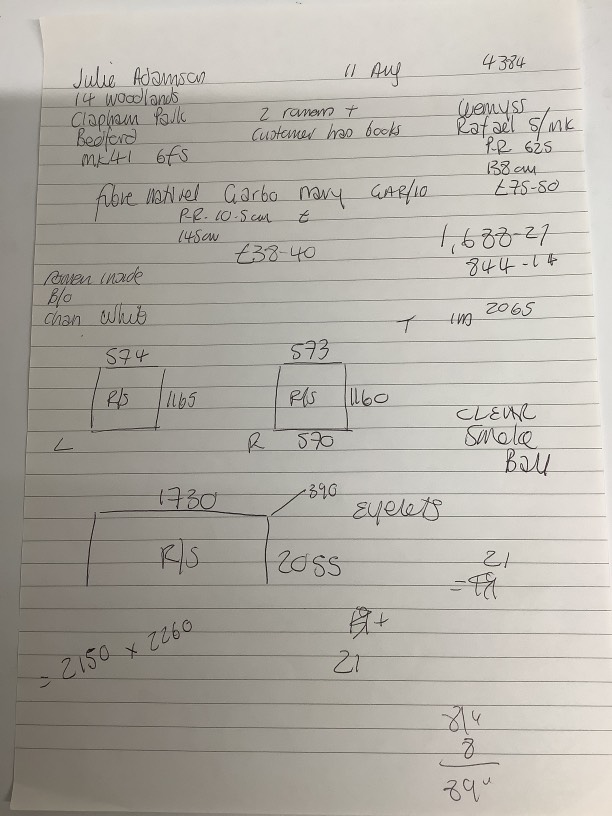 Julie Adamson 11 Aug 4384
14 woodlands
Clapham Park 2 romans + Wemyss
Bedford Customer has books Rafael S/MK
mk41 6fs P-R 625
138cm
fibre naturel Garbo navy GAR/10 £75-50
P-R. 10.5cm £
145cm 1,688-27
£38-40 844-14
Roman inside
B/O
chan White T 1m 2065
574 573
R/S 1165 R/S 1160
L R 570
CLEAR
Smoke
Ball
1730 390 Eyelets
R/S 2055
21
=
= 2150 x 2260 +
21
81"
8
89"